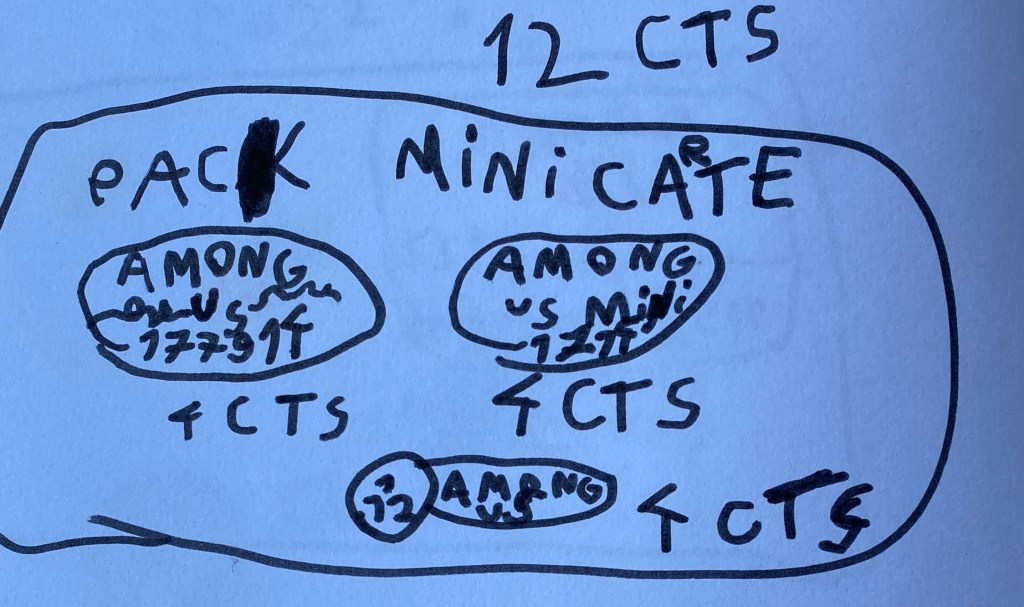 12 CTS
PACK MiNi CARTE
AMONG
US
177314
4 CTS
AMONG
US MiNi
4 CTS
AMONG
US
4 CTS